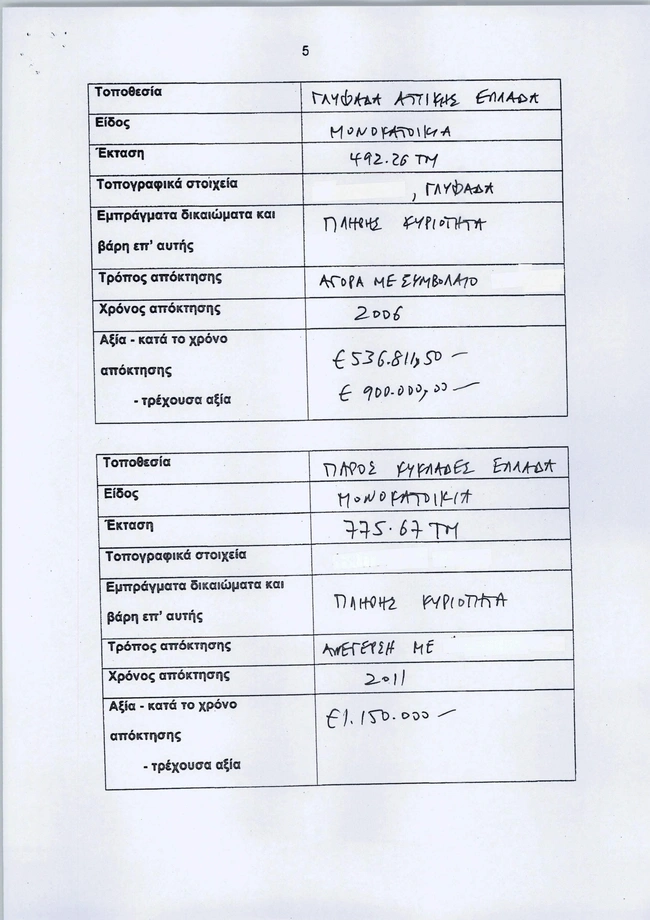 5
Τοποθεσία ΓΛΥΦΑΔΑ ΑΤΤΙΚΗΣ ΕΛΛΑΔΑ
Είδος ΜΟΝΟΚΑΤΟΙΚΙΑ
Έκταση 492.26 ΤΜ
Τοπογραφικά στοιχεία , ΓΛΥΦΑΔΑ
Εμπράγματα δικαιώματα και ΠΛΗΡΗΣ ΚΥΡΙΟΤΗΤΑ
βάρη επ' αυτής
Τρόπος απόκτησης ΑΓΟΡΑ ΜΕ ΣΥΜΒΟΛΑΙΟ
Χρόνος απόκτησης 2006
Αξία - κατά το χρόνο €536.811,50 —
απόκτησης
- τρέχουσα αξία € 900.000,00 —
Τοποθεσία ΠΑΡΟΣ ΚΥΚΛΑΔΕΣ ΕΛΛΑΔΑ
Είδος ΜΟΝΟΚΑΤΟΙΚΙΑ
Έκταση 775.67 ΤΜ
Τοπογραφικά στοιχεία
Εμπράγματα δικαιώματα και ΠΛΗΡΗΣ ΚΥΡΙΟΤΗΤΑ
βάρη επ' αυτής
Τρόπος απόκτησης ΑΝΕΓΕΡΣΗ ΜΕ
Χρόνος απόκτησης 2011
Αξία - κατά το χρόνο €1.150.000 —
απόκτησης
- τρέχουσα αξία